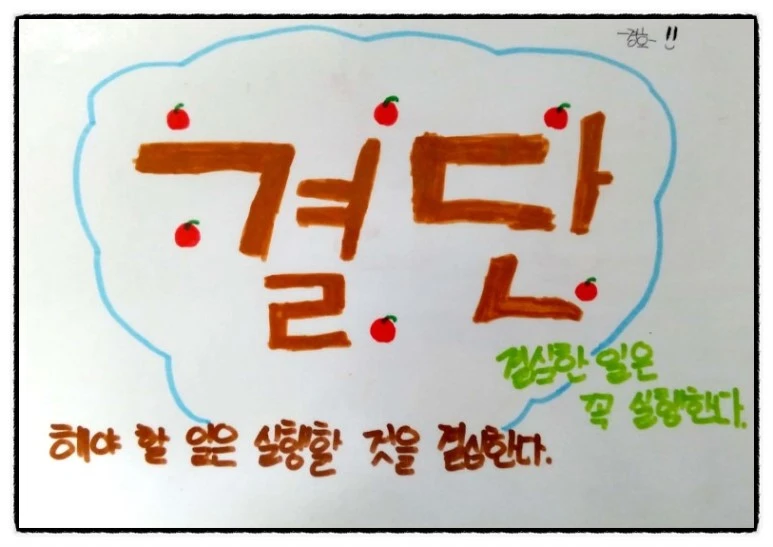 결단
결심한 일은
꼭 실행한다.
해야 할 일은 실행할 것을 결심한다.